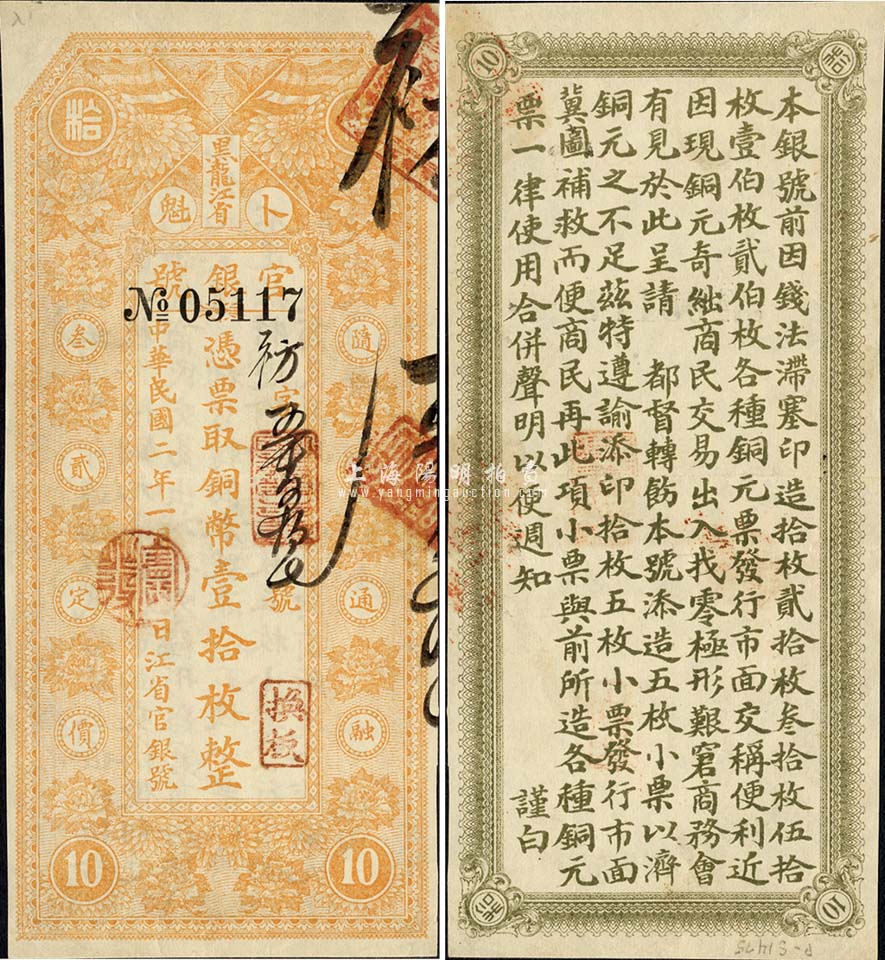 拾
黑龍江省
卜魁
官銀號
№ 05117
隨
通
融
憑票取銅幣壹拾枚整
號
換
中華民國二年一
日江省官銀號
叁
貳
定
價
10
10
上海陽明拍賣
www.yangmingauction.com
10
拾
本銀號前因錢法滯塞印造拾枚貳拾枚叁拾枚伍拾
枚壹伯枚貳伯枚各種銅元票發行市面交稱便利近
因現銅元奇絀商民交易出入找零極形艱窘商務會
有見於此呈請 都督轉飭本號添造五枚小票以濟
銅元之不足茲特遵諭添印拾枚五枚小票發行市面
冀圖補救而便商民再此項小票與前所造各種銅元
票一律使用合併聲明以便週知
謹白
拾
10
P-S1475